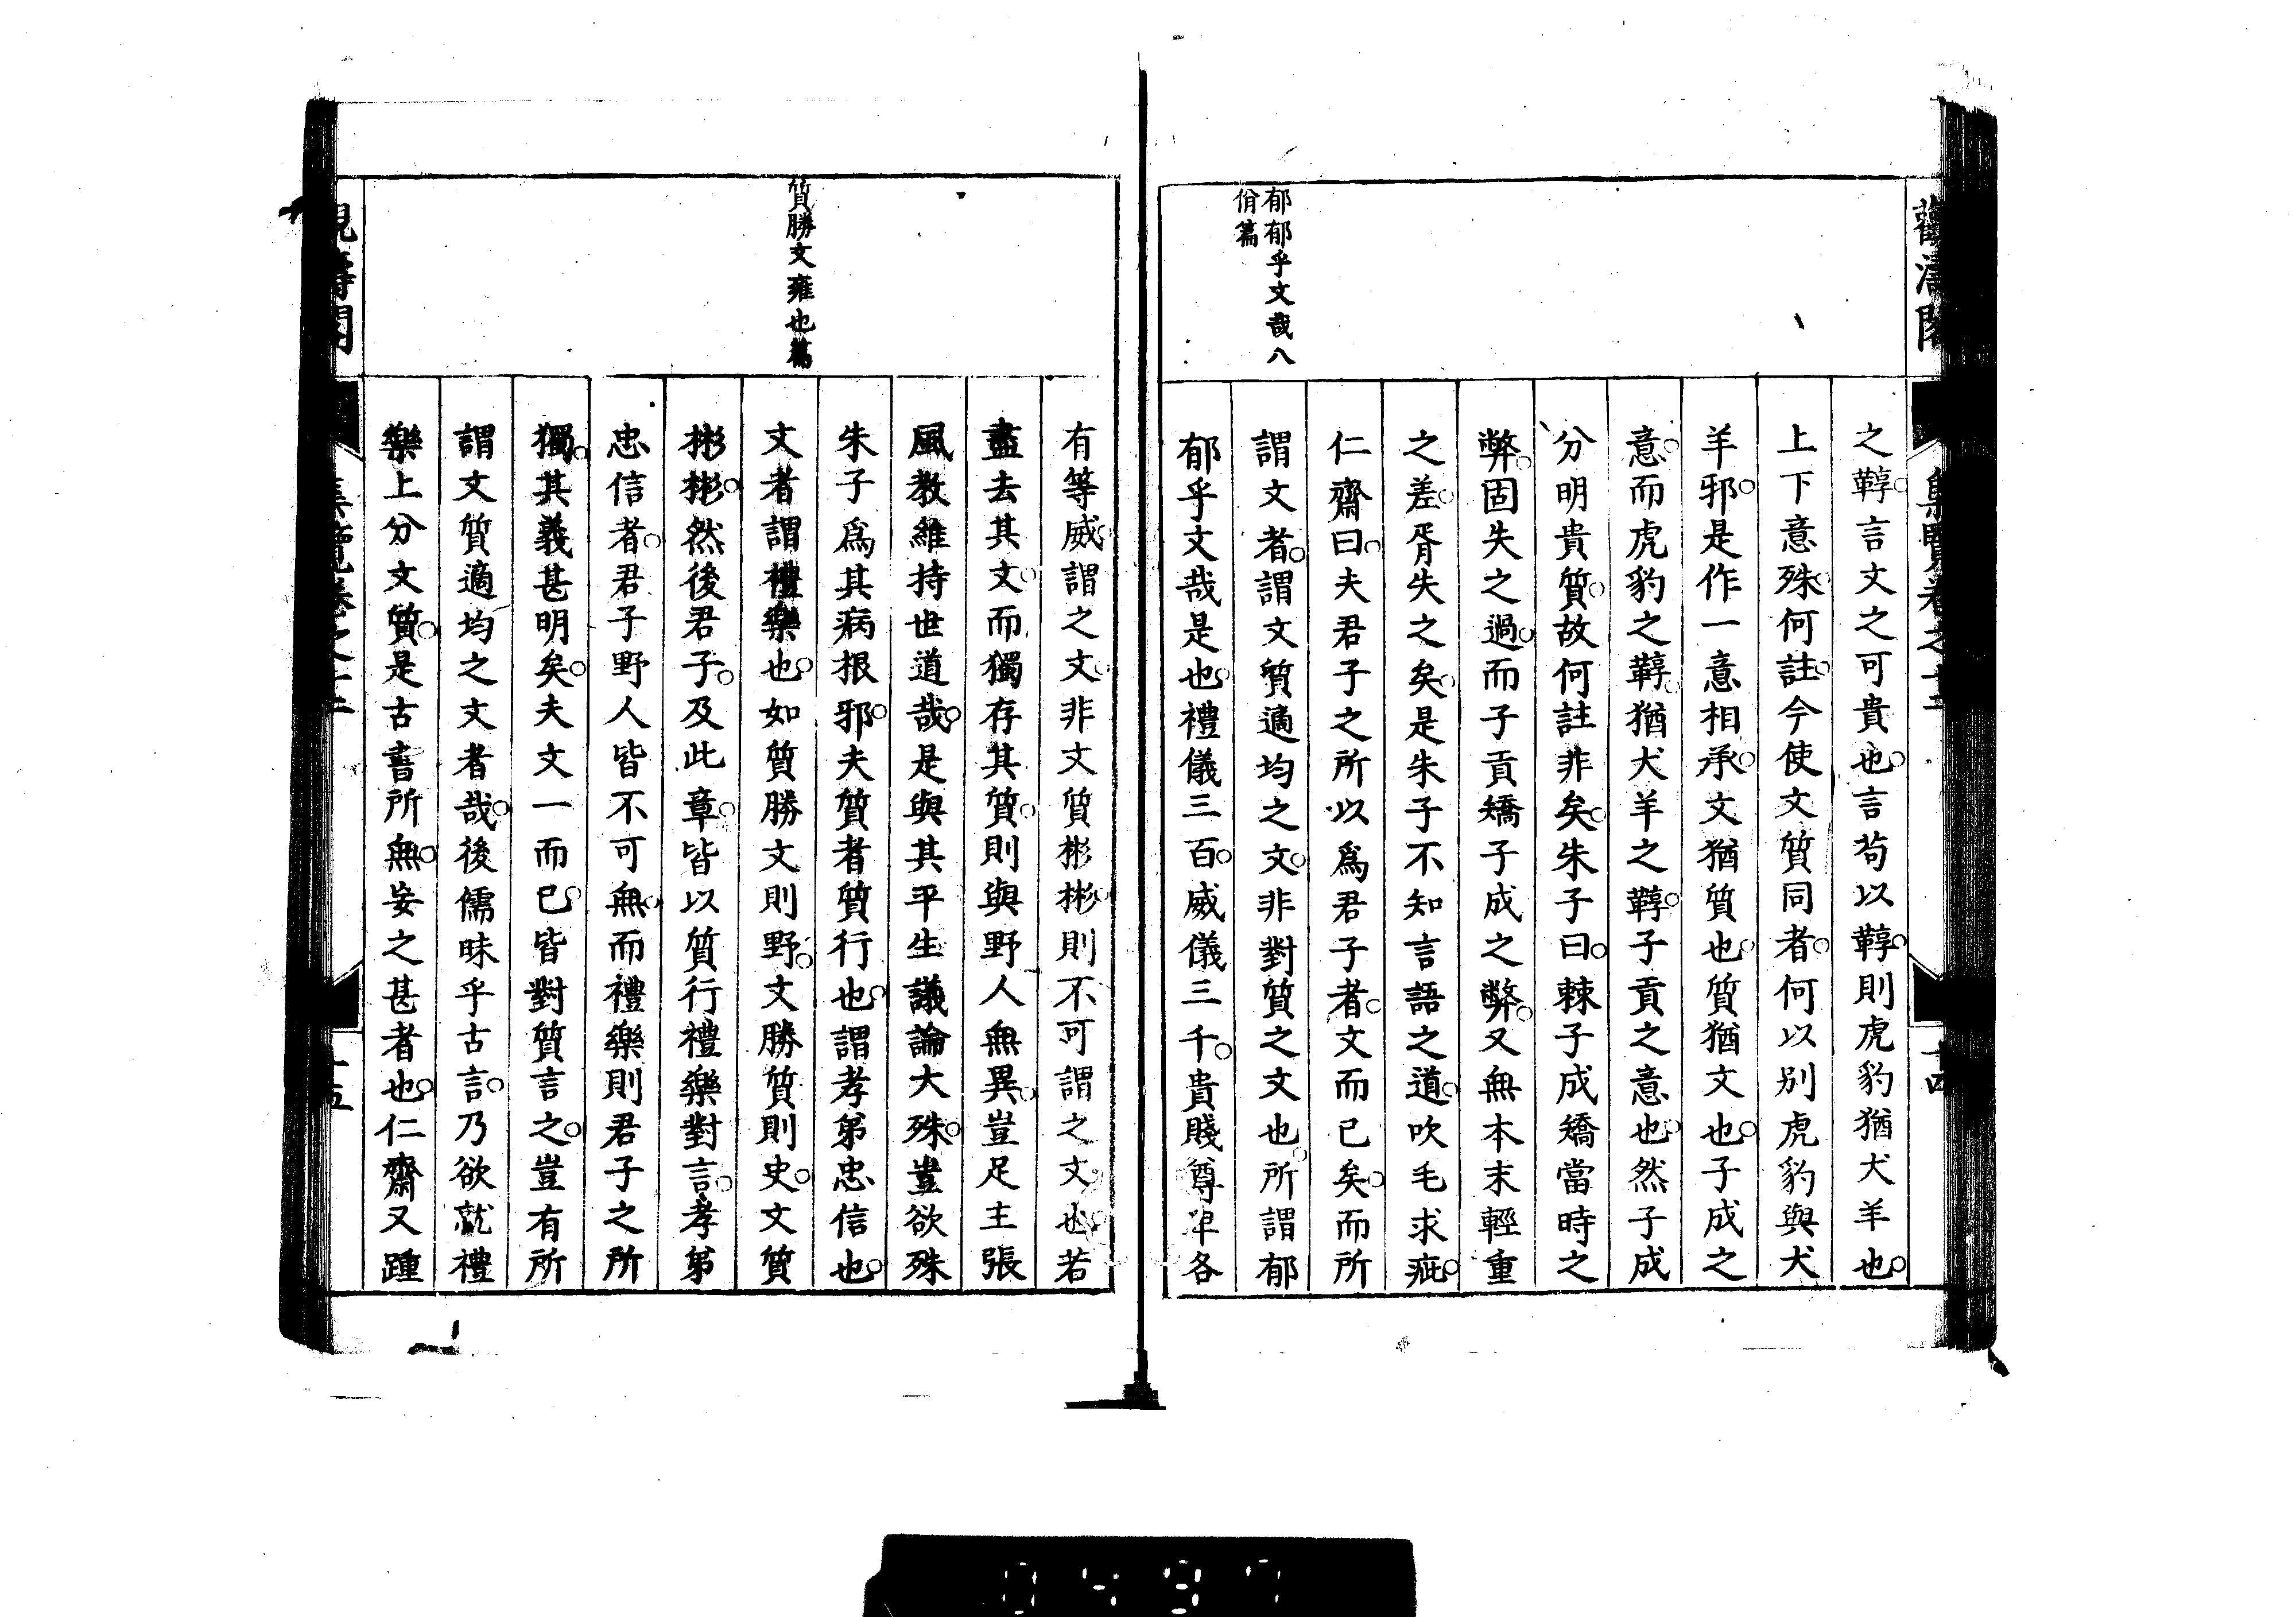 郁郁乎文哉八
佾篇
之鞟。言文之可貴也。言苟以鞟。則虎豹猶犬羊也。
上下意殊。何註。今使文質同者。何以别虎豹與犬
羊邪。是作一意相承。文猶質也。質猶文也。子成之
意。而虎豹之鞟。猶犬羊之鞟。子貢之意也。然子成
分明貴質。故何註非矣。朱子曰。棘子成矯當時之
弊。固失之過。而子貢矯子成之弊。又無本末輕重
之差。胥失之矣。是朱子不知言語之道。吹毛求疵。
仁齋曰。夫君子之所以爲君子者。文而已矣。而所
謂文者。謂文質適均之文。非對質之文也。所謂郁
郁乎文哉是也。禮儀三百。威儀三千。貴賤尊卑各
質勝文雍也篇
有等威。謂之文。非文質彬彬。則不可謂之文也。若
盡去其文。而獨存其質。則與野人無異。豈足主張
風教維持世道哉。是與其平生議論大殊。豈欲殊
朱子爲其病根邪。夫質者質行也。謂孝弟忠信也。
文者謂禮樂也。如質勝文則野。文勝質則史。文質
彬彬。然後君子。及此章。皆以質行禮樂對言。孝弟
忠信者。君子野人皆不可無。而禮樂則君子之所
獨。其義甚明矣。夫文一而已。皆對質言之。豈有所
謂文質適均之文者哉。後儒昧乎古言。乃欲就禮
樂上分文質。是古書所無。妄之甚者也。仁齋又踵